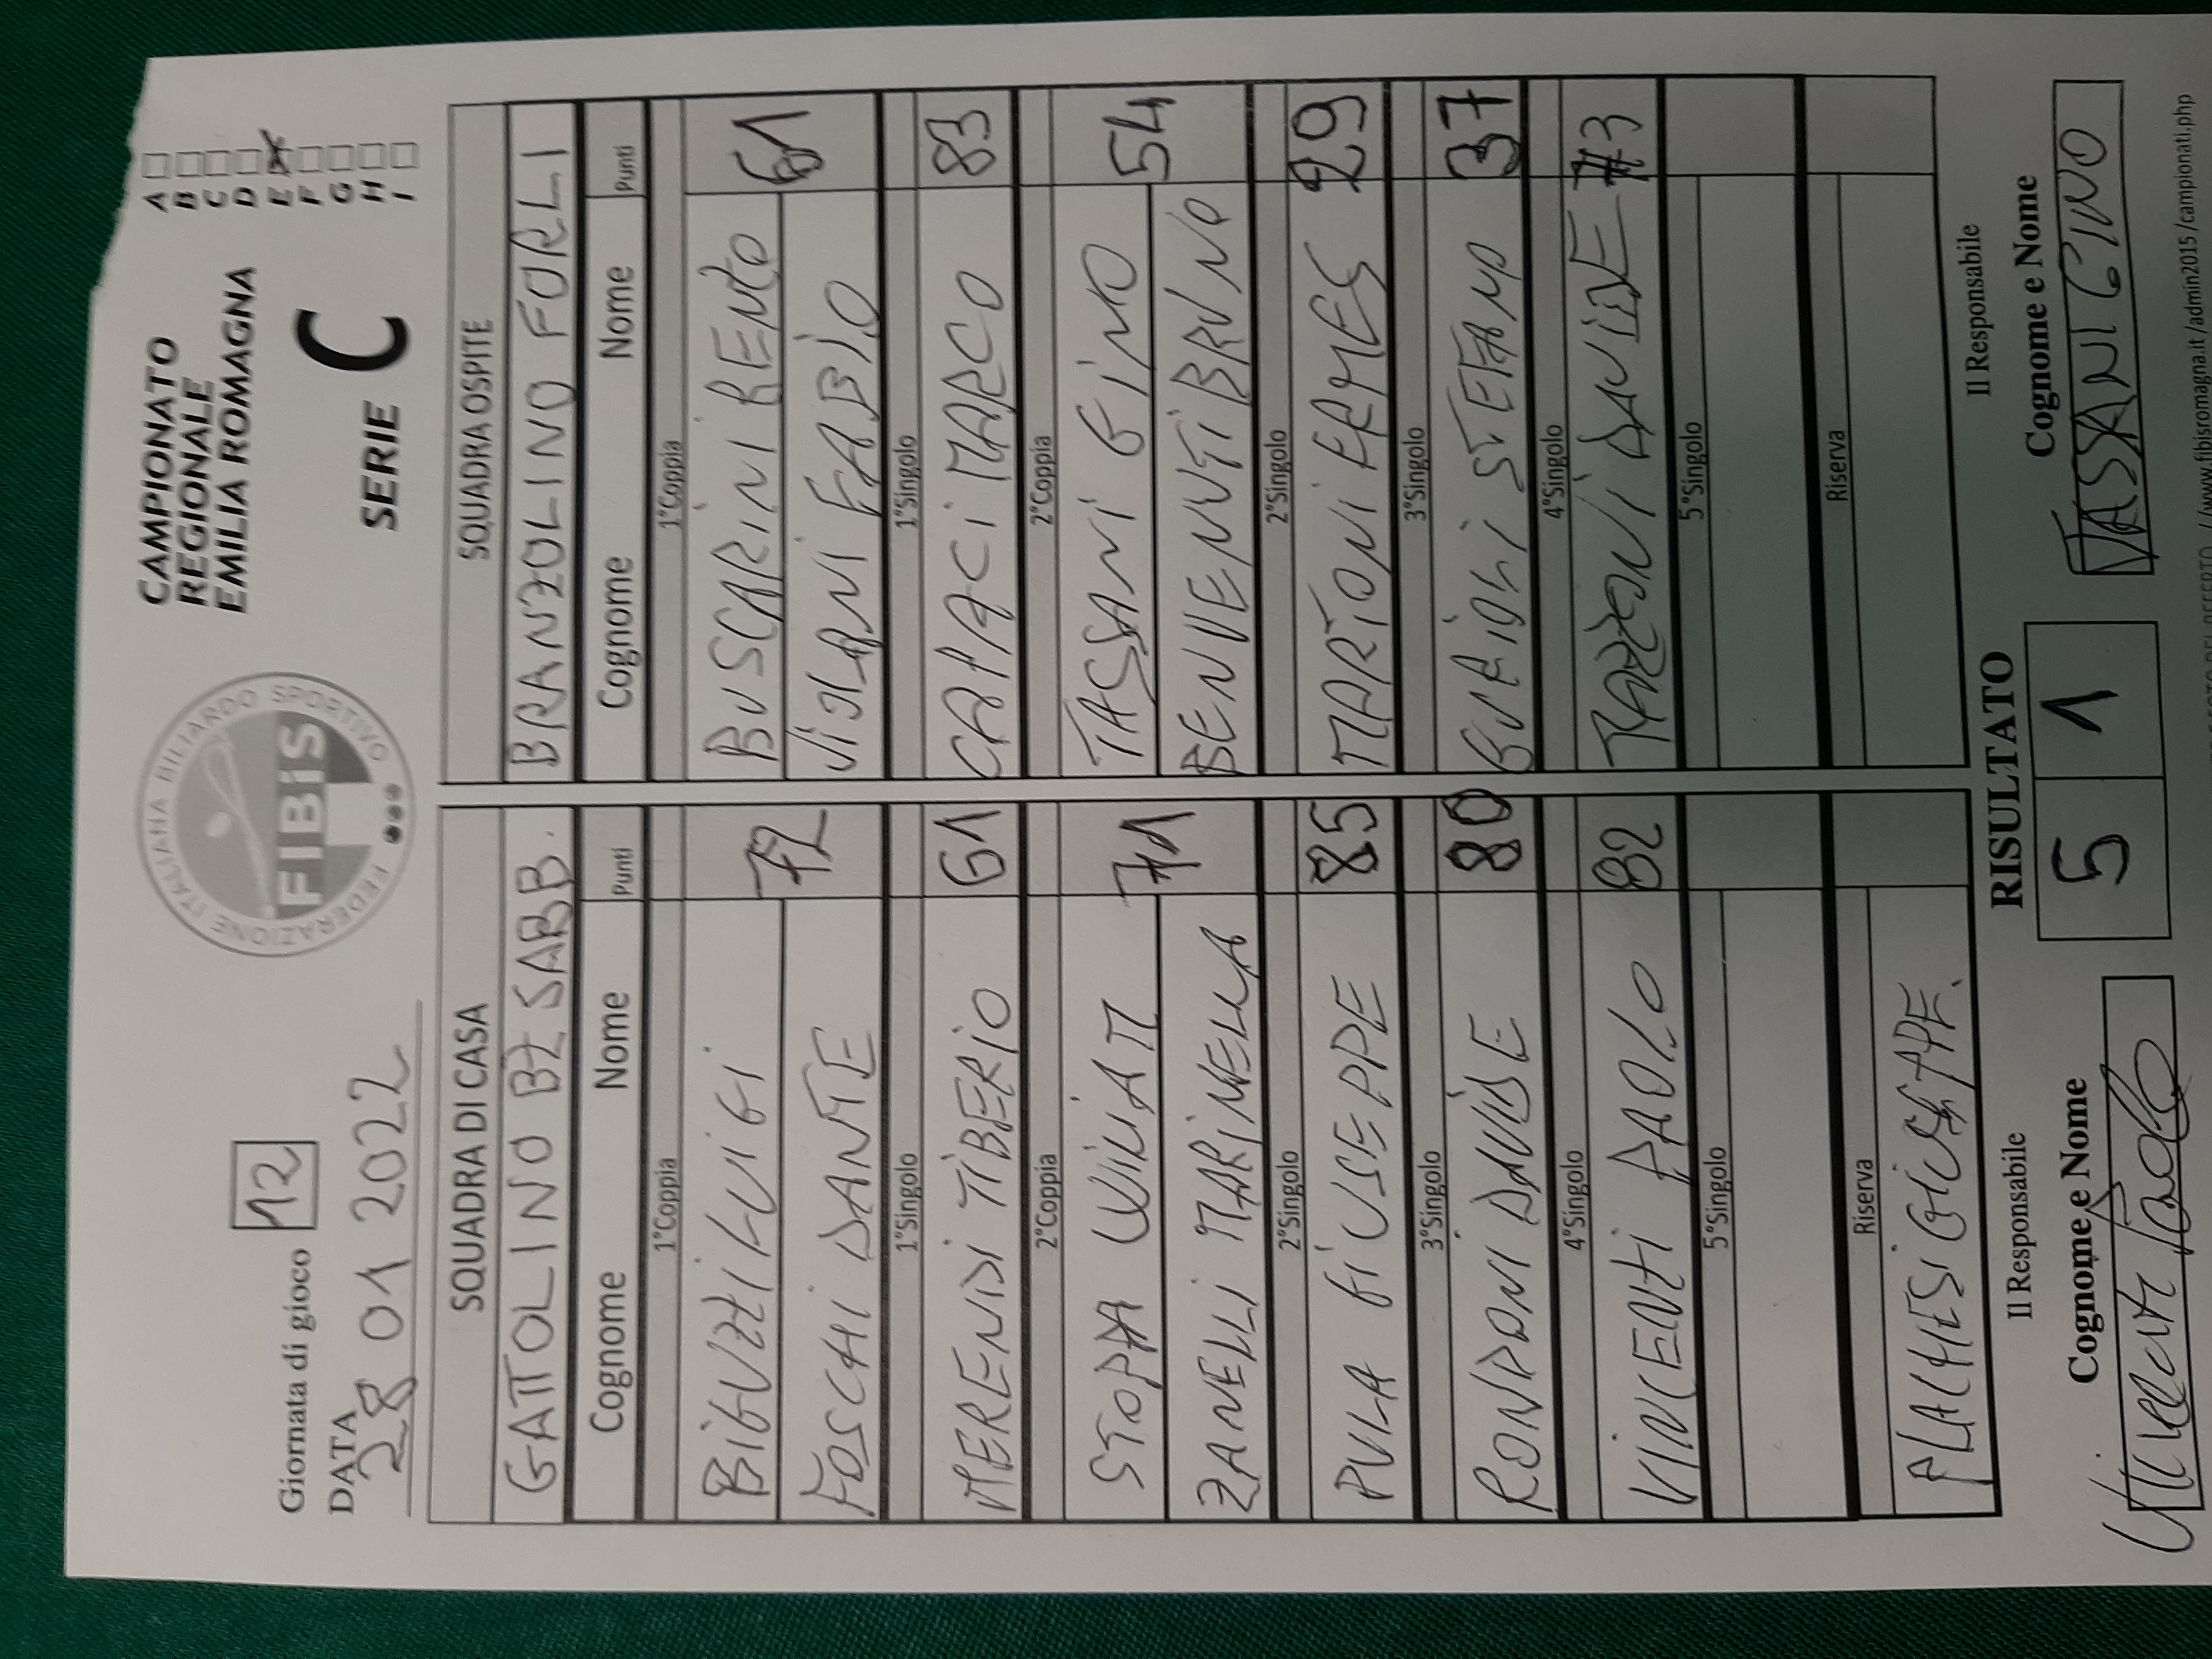 Giornata di gioco 12
DATA
28 01 2022
FEDERAZIONE ITALIANA BILIARDO SPORTIVO
FIBiS
CAMPIONATO
REGIONALE
EMILIA ROMAGNA
SERIE C
A
B
C
D
E X
F
G
H
I
SQUADRA DI CASA SQUADRA OSPITE
GATTOLINO BZ SABB. BRANZOLINO FORLI
Cognome Nome Punti Cognome Nome Punti
1°Coppia 1°Coppia
BIGUZZI LUIGI 72 BUSCARINI RENTO 61
FOSCHI DANTE VIOLANI FABIO
1°Singolo 1°Singolo
MERENDI TIBERIO 61 CAPACI MARCO 83
2°Coppia 2°Coppia
STOPPA WILIAM 71 TASSANI GINO 54
ZANELLI MARINELLA BENVENUTI BRUNO
2°Singolo 2°Singolo
PULA GIUSEPPE 85 MARTONI ERMES 29
3°Singolo 3°Singolo
RONDONI DAVIDE 80 STEFANO 37
4°Singolo 4°Singolo
VINCENTI PAOLO 82 DAVIDE 73
5°Singolo 5°Singolo
Riserva Riserva
GIUSEPPE.
Il Responsabile RISULTATO Il Responsabile
Cognome e Nome 5 1 Cognome e Nome
Vincenti Paolo TASSANI GINO
//www.fibisromagna.it /admin2015 /campionati.php